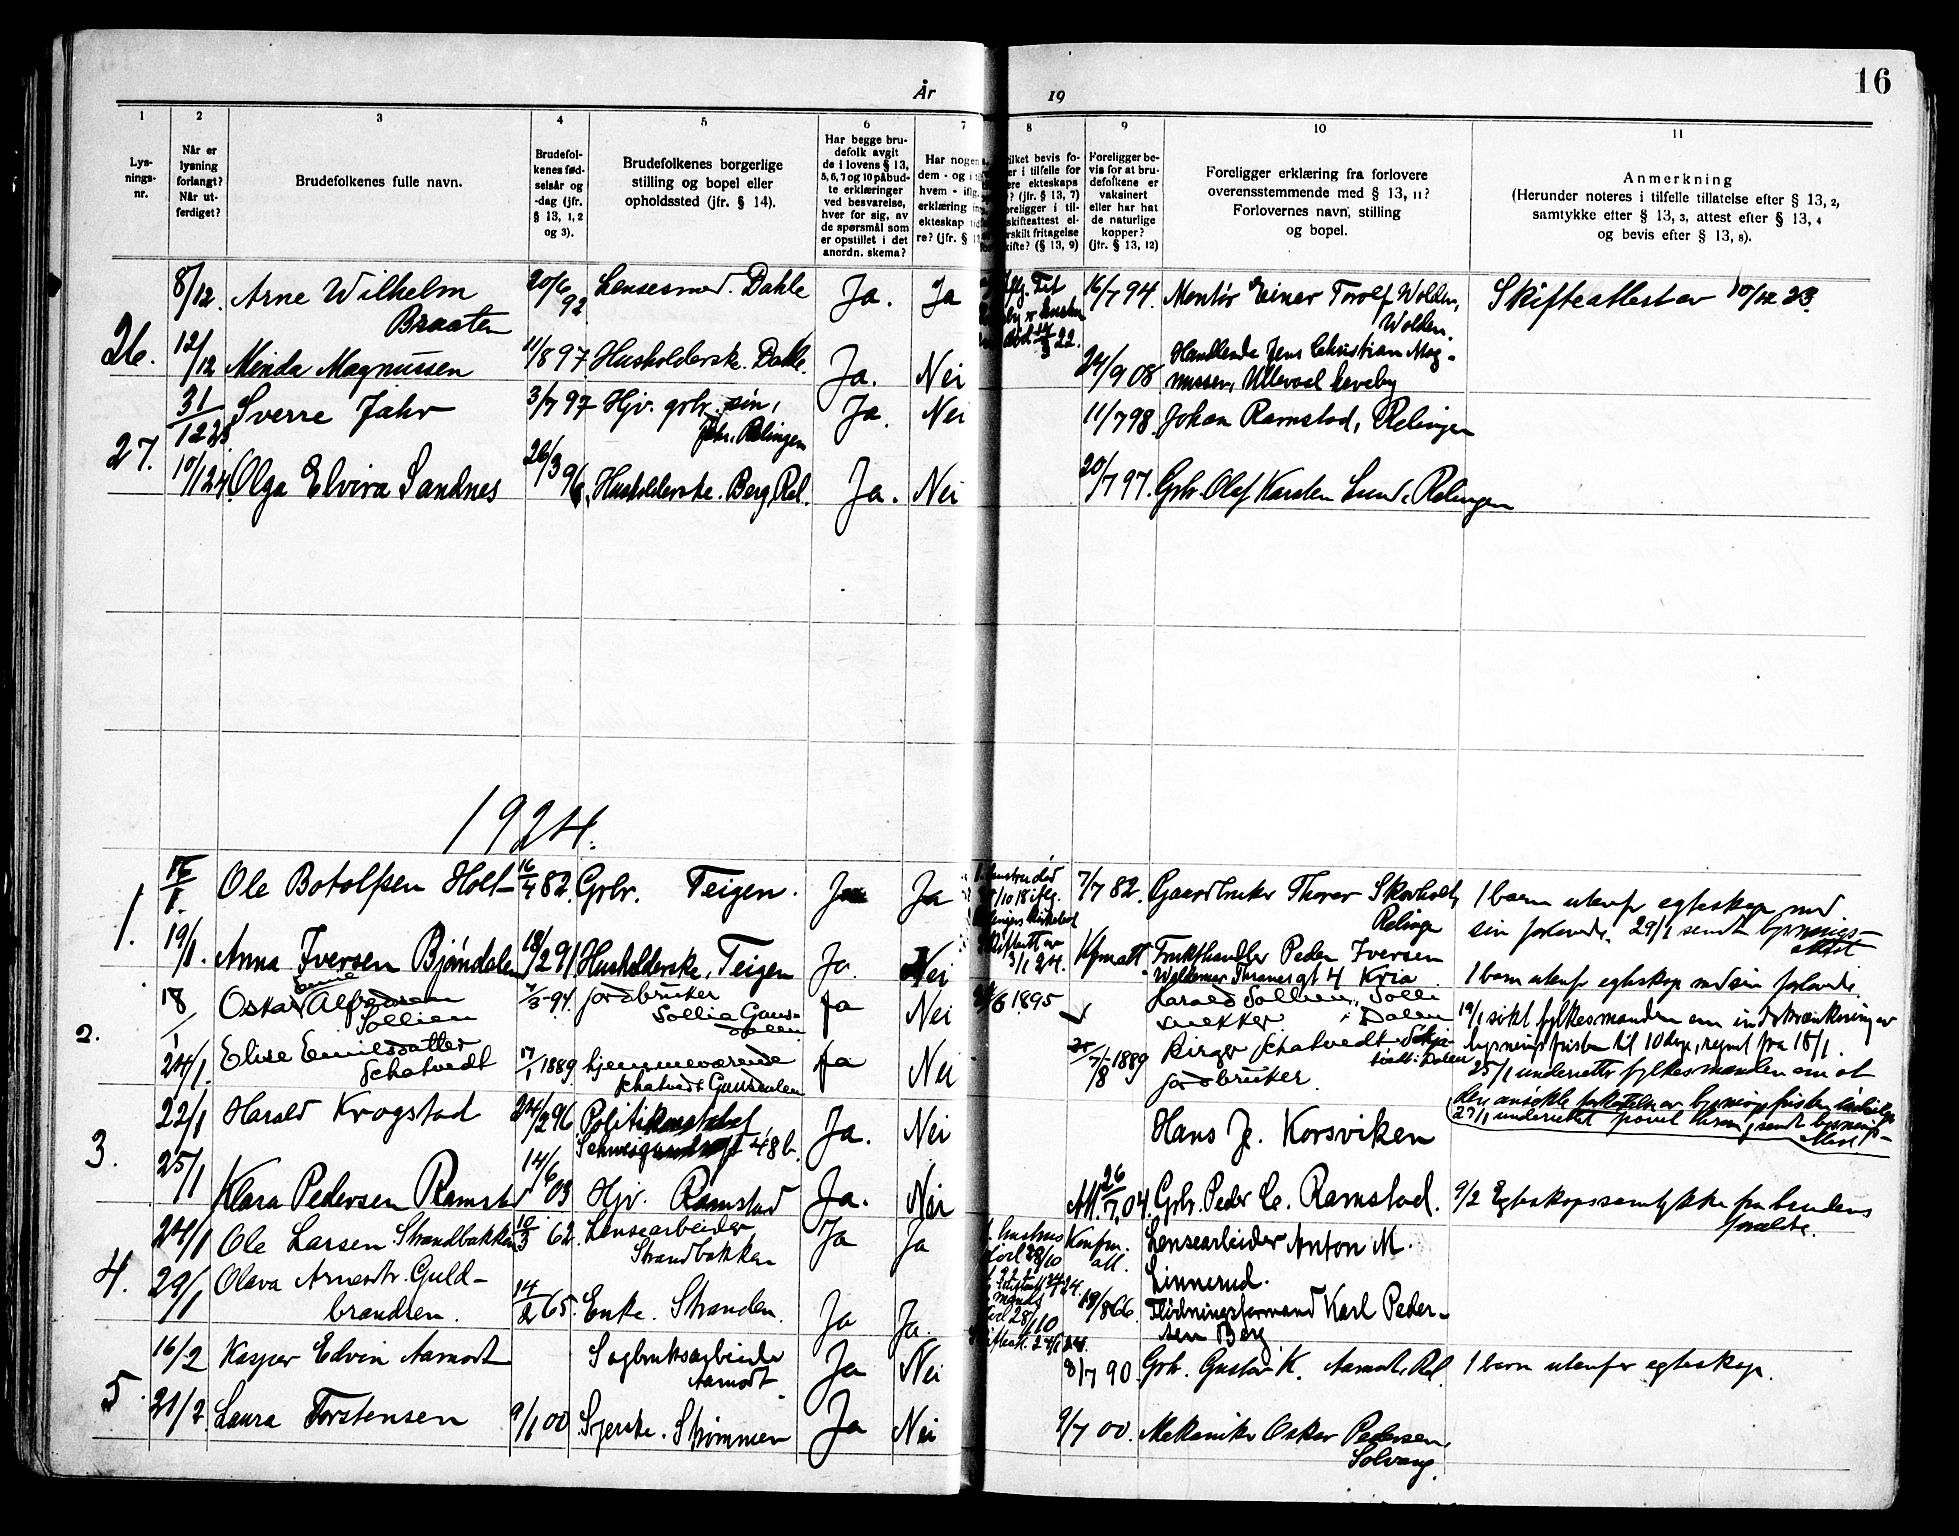 År 19
16
1 2 3 4 5 6 7 8 9 10 11
Lys-
nings-
nr.
Når er
lysning
forlangt?
Når ut-
ferdiget?
Brudefolkenes fulle navn.
Brudefol-
kenes fød-
selsår og
-dag (jfr.
§ 13, 1, 2
og 3).
Brudefolkenes borgerlige
stilling og bopel eller
opholdssted (jfr. § 14).
Har begge bru-
defolk avgit
de i lovens § 13,
5, 6, 7 og 10 påbud-
te erklæringer
ved besvarelse,
hver for sig, av
de spørsmål som
er opstillet i det
anordn. skema?
Har nogen
dem - og i
hvem - iflg.
erklæring
ekteskap
re? (jfr. §
ilket bevis fo-
er i tilfelle for
ere ekteskaps
? (jfr. § 13, 7)
oreligger i til-
skifteattest el-
erskilt fritagelse
kifte? (§ 13, 9)
Foreligger be-
vis for at bru-
defolkene er
vaksinert
eller har hat
de naturlige
kopper?
(jfr. § 13, 12)
Foreligger erklæring fra forlovere
overensstemmende med § 13, 11?
Forlovernes navn, stilling
og bopel.
Anmerkning
(Herunder noteres i tilfelle tillatelse efter § 13, 2,
samtykke efter § 13, 3, attest efter § 13, 4
og bevis efter § 13, 8).
26.
8/12. Arne Wilhelm Braaten 20/6 92 Lensesmed. Dahle Ja. Ja 16/7 94. Montør Einar Torolf Wolden, Wolden. Skifteattest av 10/12 23
12/12 Minda Magnussen 11/8 97 Husholderske. Dahle. Ja. Nei 24/9 08 Handlende Jens Christian Mag-
nussen, Ullevaal haveby
27.
31/12 23 Sverre Jahr 3/7 97 Hjv. grbr. søn, Jahr. Rælingen Ja. Nei 11/7 98. Johan Ramstad, Rælingen
10/1 24. Olga Elvira Sandnes 26/3 96. Husholderske. Berg, Ræl. Ja. Nei 20/7 97. Grbr. Olaf Karsten Lund, Rælingen
1924.
1.
16/1. Ole Botolfsen Holt 16/4 82. Grbr. Teigen. Ja Ja 7/7 82. Gaardbruker Thorar Skovholt, Rælingen 1 barn utenfor egteskap med
sin forlovede. 29/1 sendt lysnings-
attest
19/1. Anna Iversen Bjøndalen 18/2 91 Husholderske, Teigen Ja. Nei 3/1 24. Kfmatt. Frukthandler Peder Iversen
Waldemar Thranes gt 4 Kria 1 barn utenfor egteskap med sin forlovede.
2.
18/1 Oskar Alf Sollien 7/3-94. jordbruker
Sollia Gaus-
dalen Ja Nei 6 1895 Harald Sollien, Solli
snekker i Dalen 19/1 søkt fylkesmanden om indskrænkning av
lysningsfristen til 10 dage, regnet fra 18/1.
24/1. Elise Emilsdatter
Schatvedt 17/1 1889 hjemmeværende
Schatvedt Gausdalen Ja Nei 7/8 1889 Birger Schatvedt
jordbruker. 25/1 underrettet fylkesmanden om at
den ansøkte forkortelse av lysningsfristen
29/1 underrettet sendt lysnings-
attest
3.
22/1 Harald Krogstad 24/2 96 Politikonstabel
Schweigaardsgt 48 b. Ja. Nei Hans J. Korsviken
25/1 Klara Pedersen Ramstad 14/6 03 Hjv. Ramstad Ja. Nei Att. 26/7, 04. Grbr. Peder C. Ramstad. 9/2 Egteskapssamtykke fra brudens
forældre.
4.
24/1 Ole Larsen Strandbakken 10/3 62. Lensearbeider
Strandbakken Ja Ja Konfm.
att. Lensearbeider Anton M.
Linnerud.
29/1 Olava Arnesdtr. Guld-
brandsen. 14/2 65. Enke. Stranden. Ja Ja. 19/8 66. Fløtningsformand Karl Peder-
sen Berg
5.
16/2 Kasper Edvin Aamodt Sagbruksarbeider
Aamodt. Ja Nei 8/7 90. Grb. Gustav K. Aamodt. Ræl. 1 barn utenfor egteskap.
21/2. Laura Torstensen 9/1 00. Syerske. Strømmen Ja Nei 9/7 00. Mekaniker Oskar Pedersen,
Solvang.